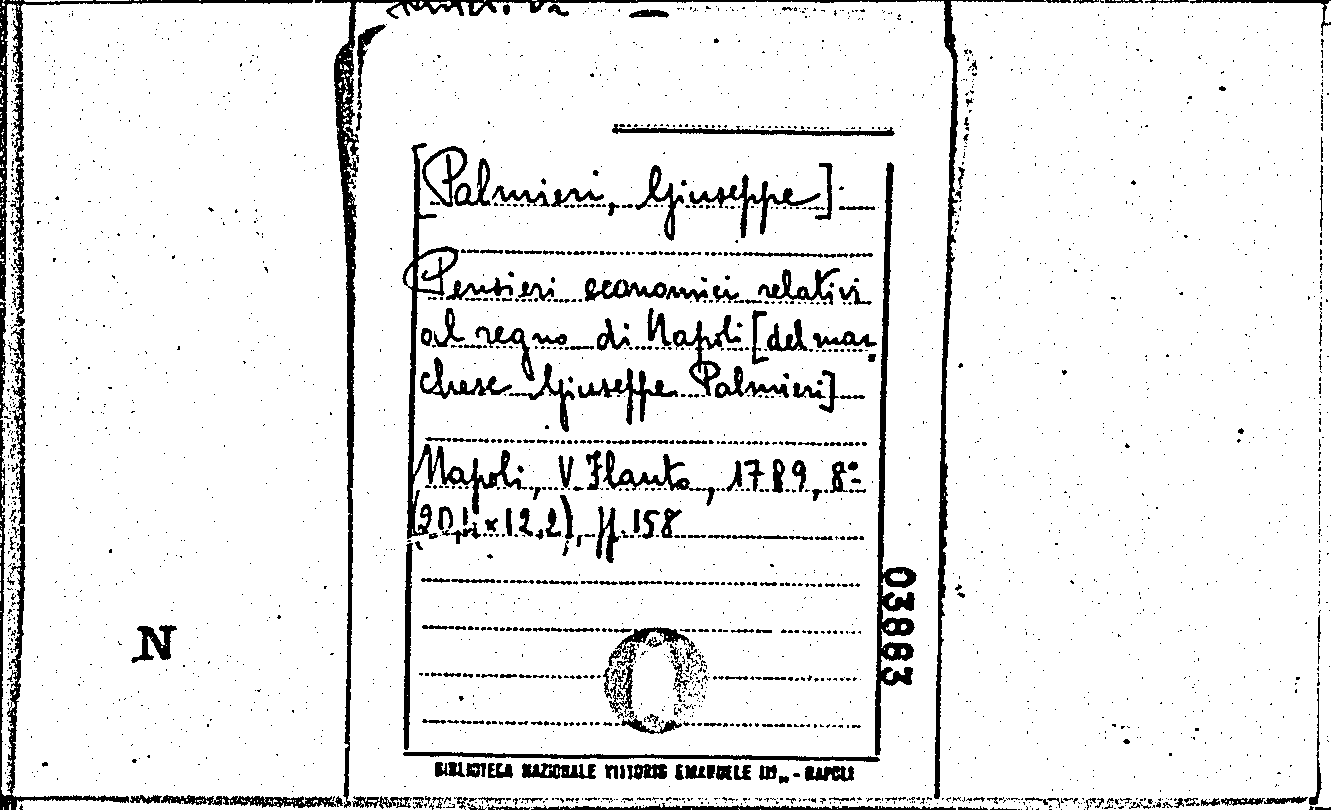 [Palmieri, Giuseppe].
Pensieri economici relativi
al regno di Napoli [del mar-
chese Giuseppe Palmieri]
Napoli, V. Flauto, 1789, 8º
(20,4×12,2), pp. 158
03883
N
BIBLIOTECA NAZIONALE VITTORIO EMANUELE III„ - NAPOLI